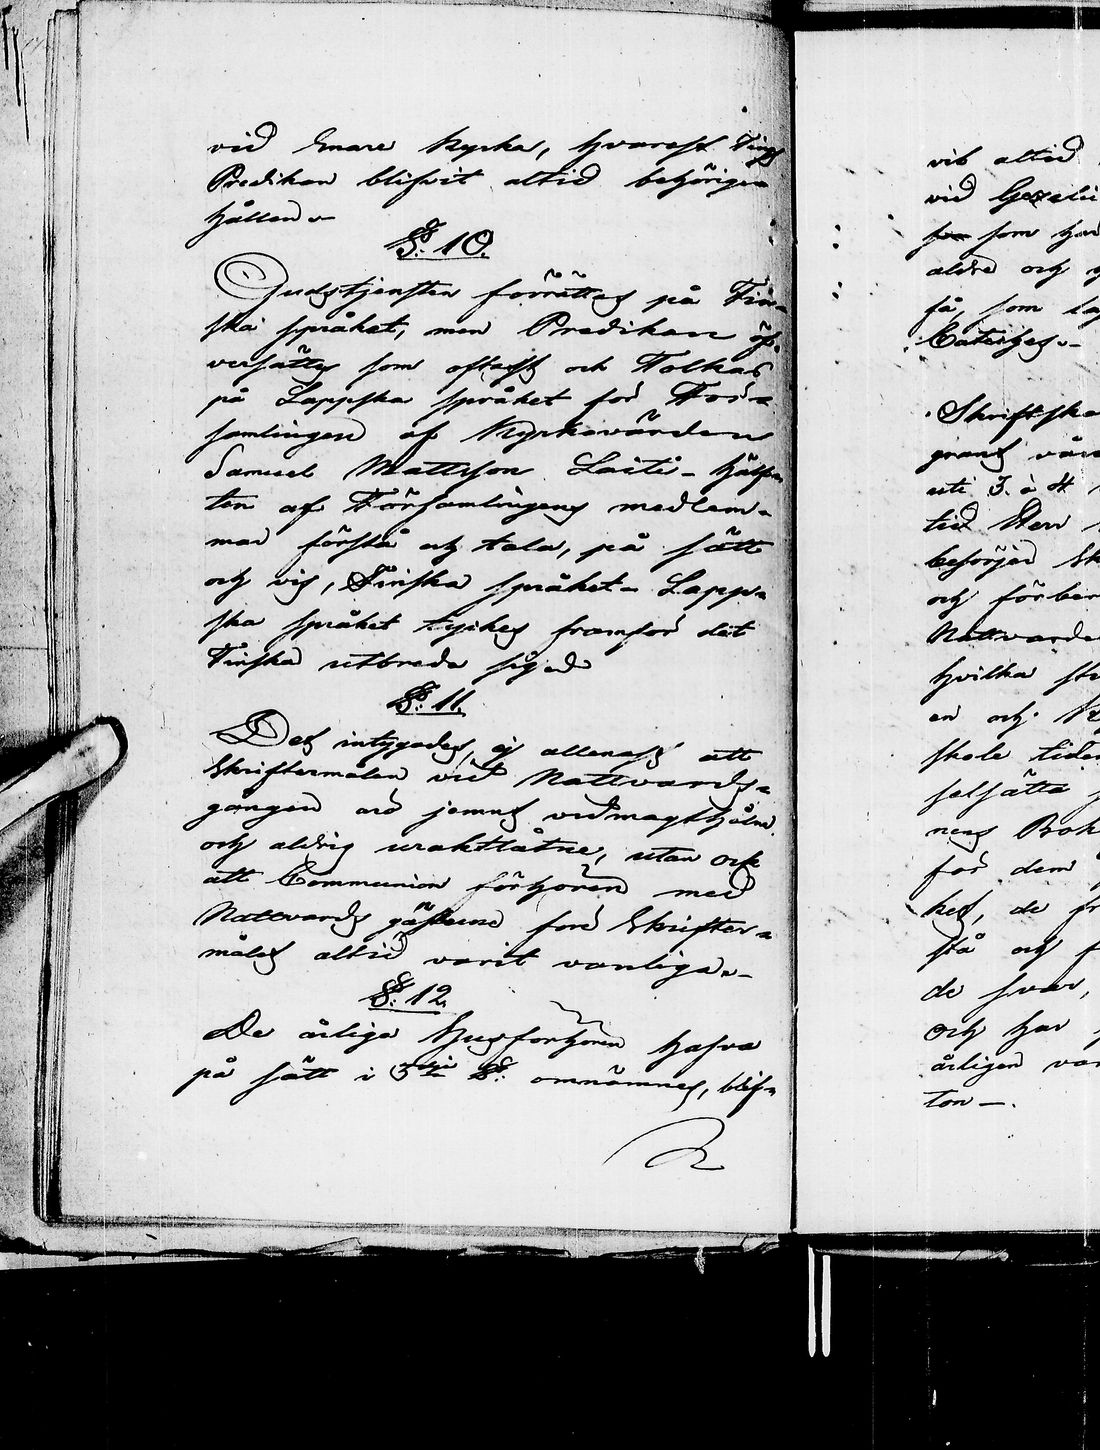 vid Enare Kyrka, hvarest Tings
Predikan blifvit altid behörigen
hållen.
§. 10.
Gudstjensten förrättas på Fin-
ska språket, men Predikan öf-
versättes som oftast och Tolkas
på Lappska språket för För-
samlingen af Kyrkovärden
Samuel Mattsson Laiti - Hälf-
ten af Församlingens medlem-
mar förstå och tala, på sätt
och vis, Finska språket - Lapp-
ska språket tyckes framför det
Finska utbreda sig
§. 11.
Det intygades, ej allenast att
Skriftermålen vid Nattvards-
gången äro jemnt vidmagthålne
och aldrig uraktlåtne, utan ock
att Communion förhören med
Nattvards gästerne före Skrifter-
målet altid varit vanliga.-
§. 12.
De årlige Husförhören hafva
på sätt i 3dje §. omnämnes, blif-
vit altid
vid
som
äldre och
få, som
Skriftska
grant
uti 3. à 4
tid
besörjer
och förber
Nattvarde
hvilka
en och
skole tiden
felsätta
nens Bok
för dem
het, de
stå och
de svar,
och har
årligen
ton -.